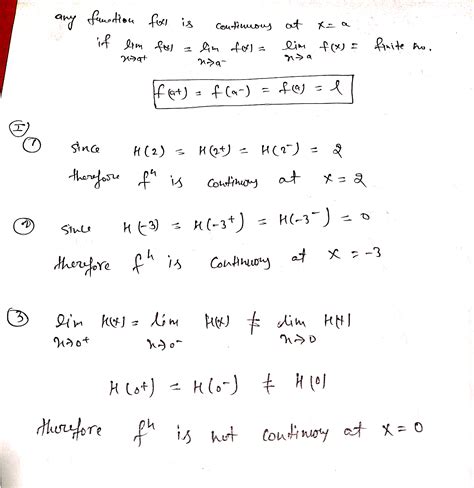 any function f(x) is continuous at x = a
if lim f(x) = lim f(x) = lim f(x) = finite no.
x→a+ x→a- x→a
f(a+) = f(a-) = f(a) = l
I
① since H(2) = H(2+) = H(2-) = 2
therefore fn is continuous at x = 2
② since H(-3) = H(-3+) = H(-3-) = 0
therefore fn is continuous at x = -3
③ lim H(x) = lim H(x) ≠ lim H(x)
x→0+ x→0- x→0
H(0+) = H(0-) ≠ H(0)
therefore fn is not continuous at x = 0